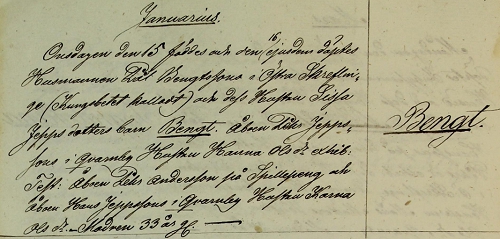 Januarius.
Onsdagen den 15 föddes och den 16 ejusdem döptes
Husmannen Pål Bengtssons i Östra Skreflin-
ge (Kungsbetet kallad) och dess Hustru Sissa
Jepps dotters barn Bengt. Åboen Jepps-
sons i Qvarnby Hustru Hanna
Test: Åboen Andersson på Spillepeng och
Åboen Hans Jeppssons i Qvarnby Hustru Karna
Modren 33 år gl.
Bengt.